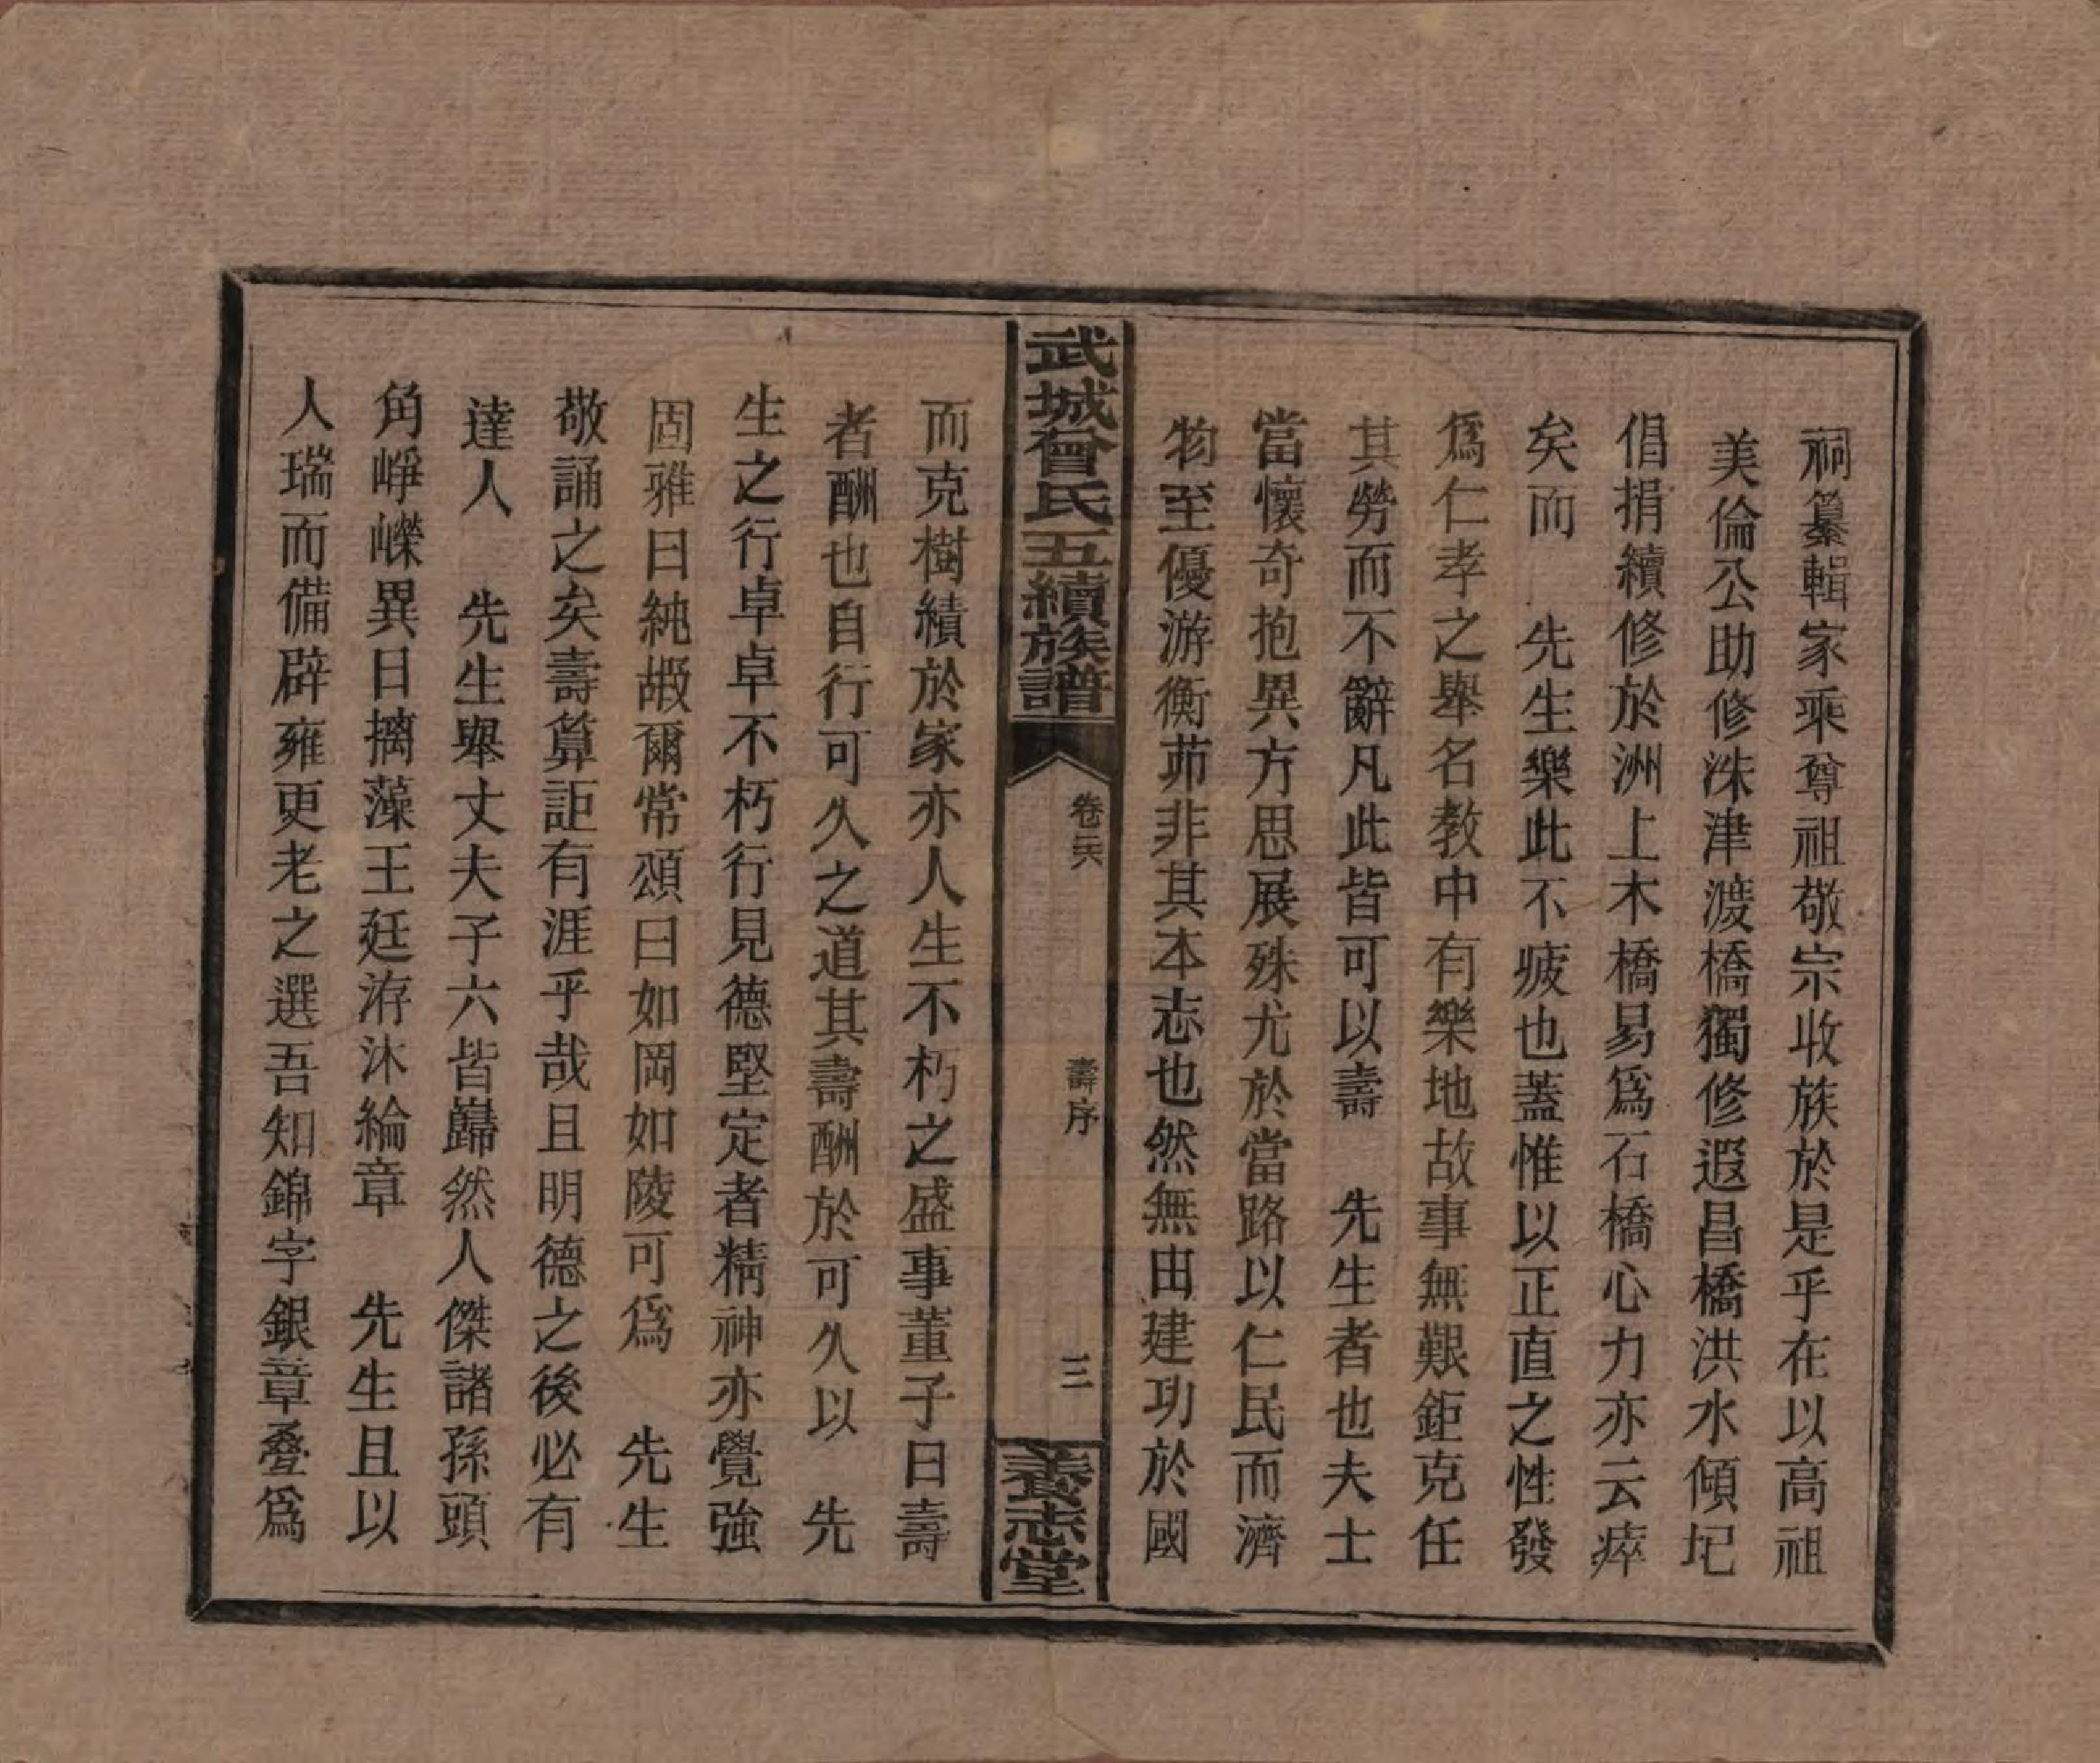 祠纂輯家乘尊祖敬宗收族於是乎在以高祖
美倫公助修洙津渡橋獨修遐昌橋洪水傾圮
倡捐續修於洲上木橋易爲石橋心力亦云瘁
矣而　先生樂此不疲也蓋惟以正直之性發
爲仁孝之舉名教中有樂地故事無艱鉅克任
其勞而不辭凡此皆可以壽　先生者也夫士
當懷奇抱異方思展殊尤於當路以仁民而濟
物至優游衡茆非其本志也然無由建功於國
武城曾氏五續族譜
卷六
壽序
三
養志堂
而克樹績於家亦人生不朽之盛事董子曰壽
者酬也自行可久之道其壽酬於可久以　先
生之行卓卓不朽行見德堅定者精神亦覺強
固雅曰純嘏爾常頌曰如岡如陵可爲　先生
敬誦之矣壽算詎有涯乎哉且明德之後必有
達人　先生舉丈夫子六皆巋然人傑諸孫頭
角崢嶸異日擒藻王廷洊沐綸章　先生且以
人瑞而備辟雍更老之選吾知錦字銀章叠爲